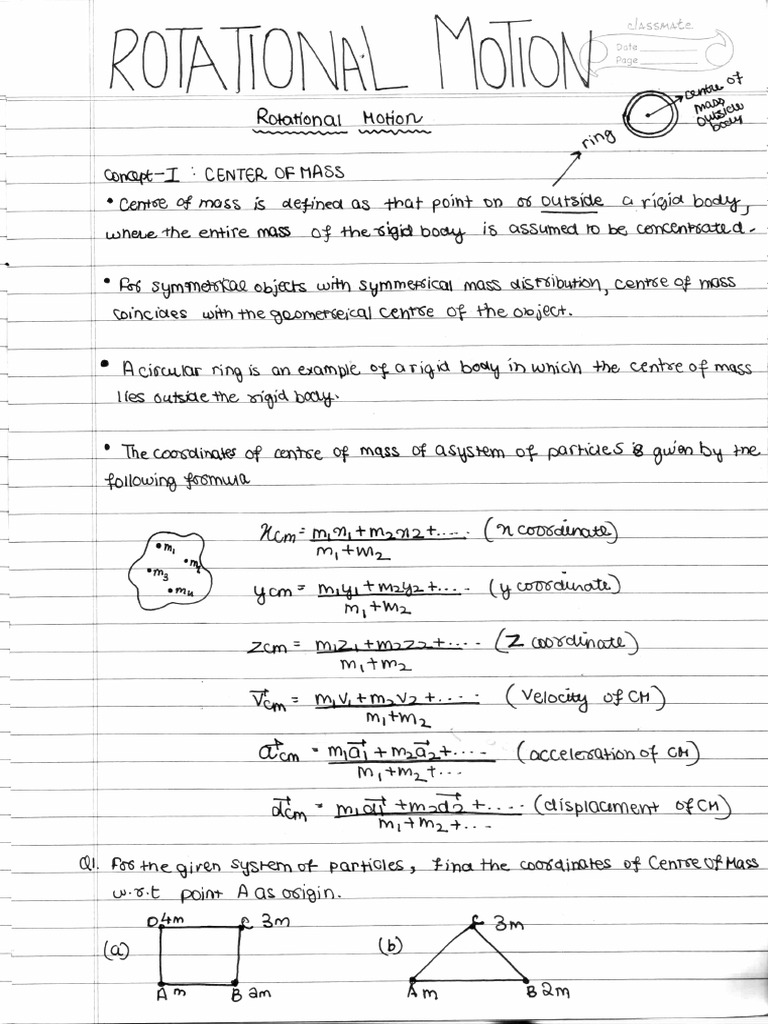 classmate
Date
Page
ROTATIONAL MOTION
Rotational Motion
ring
centre of
mass
outside
body
Concept-I : CENTER OF MASS
• Centre of mass is defined as that point on or outside a rigid body,
where the entire mass of the rigid body is assumed to be concentrated.
• For symmetrical objects with symmetrical mass distribution, centre of mass
coincides with the geometrical centre of the object.
• A circular ring is an example of a rigid body in which the centre of mass
lies outside the rigid body.
• The coordinates of centre of mass of a system of particles is given by the
following formula
m₁
m₂
m₃
m₄
xcm = m₁x₁+m₂x2+.... (x coordinate)
m₁+m₂
ycm = m₁y₁+m₂y₂+.... (y coordinate)
m₁+m₂
zcm = m₁z₁+m₂z₂+.... (z coordinate)
m₁+m₂
v⃗cm = m₁v₁+m₂v₂+.... (velocity of CM)
m₁+m₂
a⃗cm = m₁a⃗₁+m₂a⃗₂+.... (acceleration of CM)
m₁+m₂+...
d⃗cm = m₁d⃗₁+m₂d⃗₂+.... (displacement of CM)
m₁+m₂+...
Q1. For the given system of particles, find the coordinates of Centre Of Mass
w.r.t point A as origin.
(a)
D 4m
C 3m
A m
B 2m
(b)
C 3m
A m
B 2m